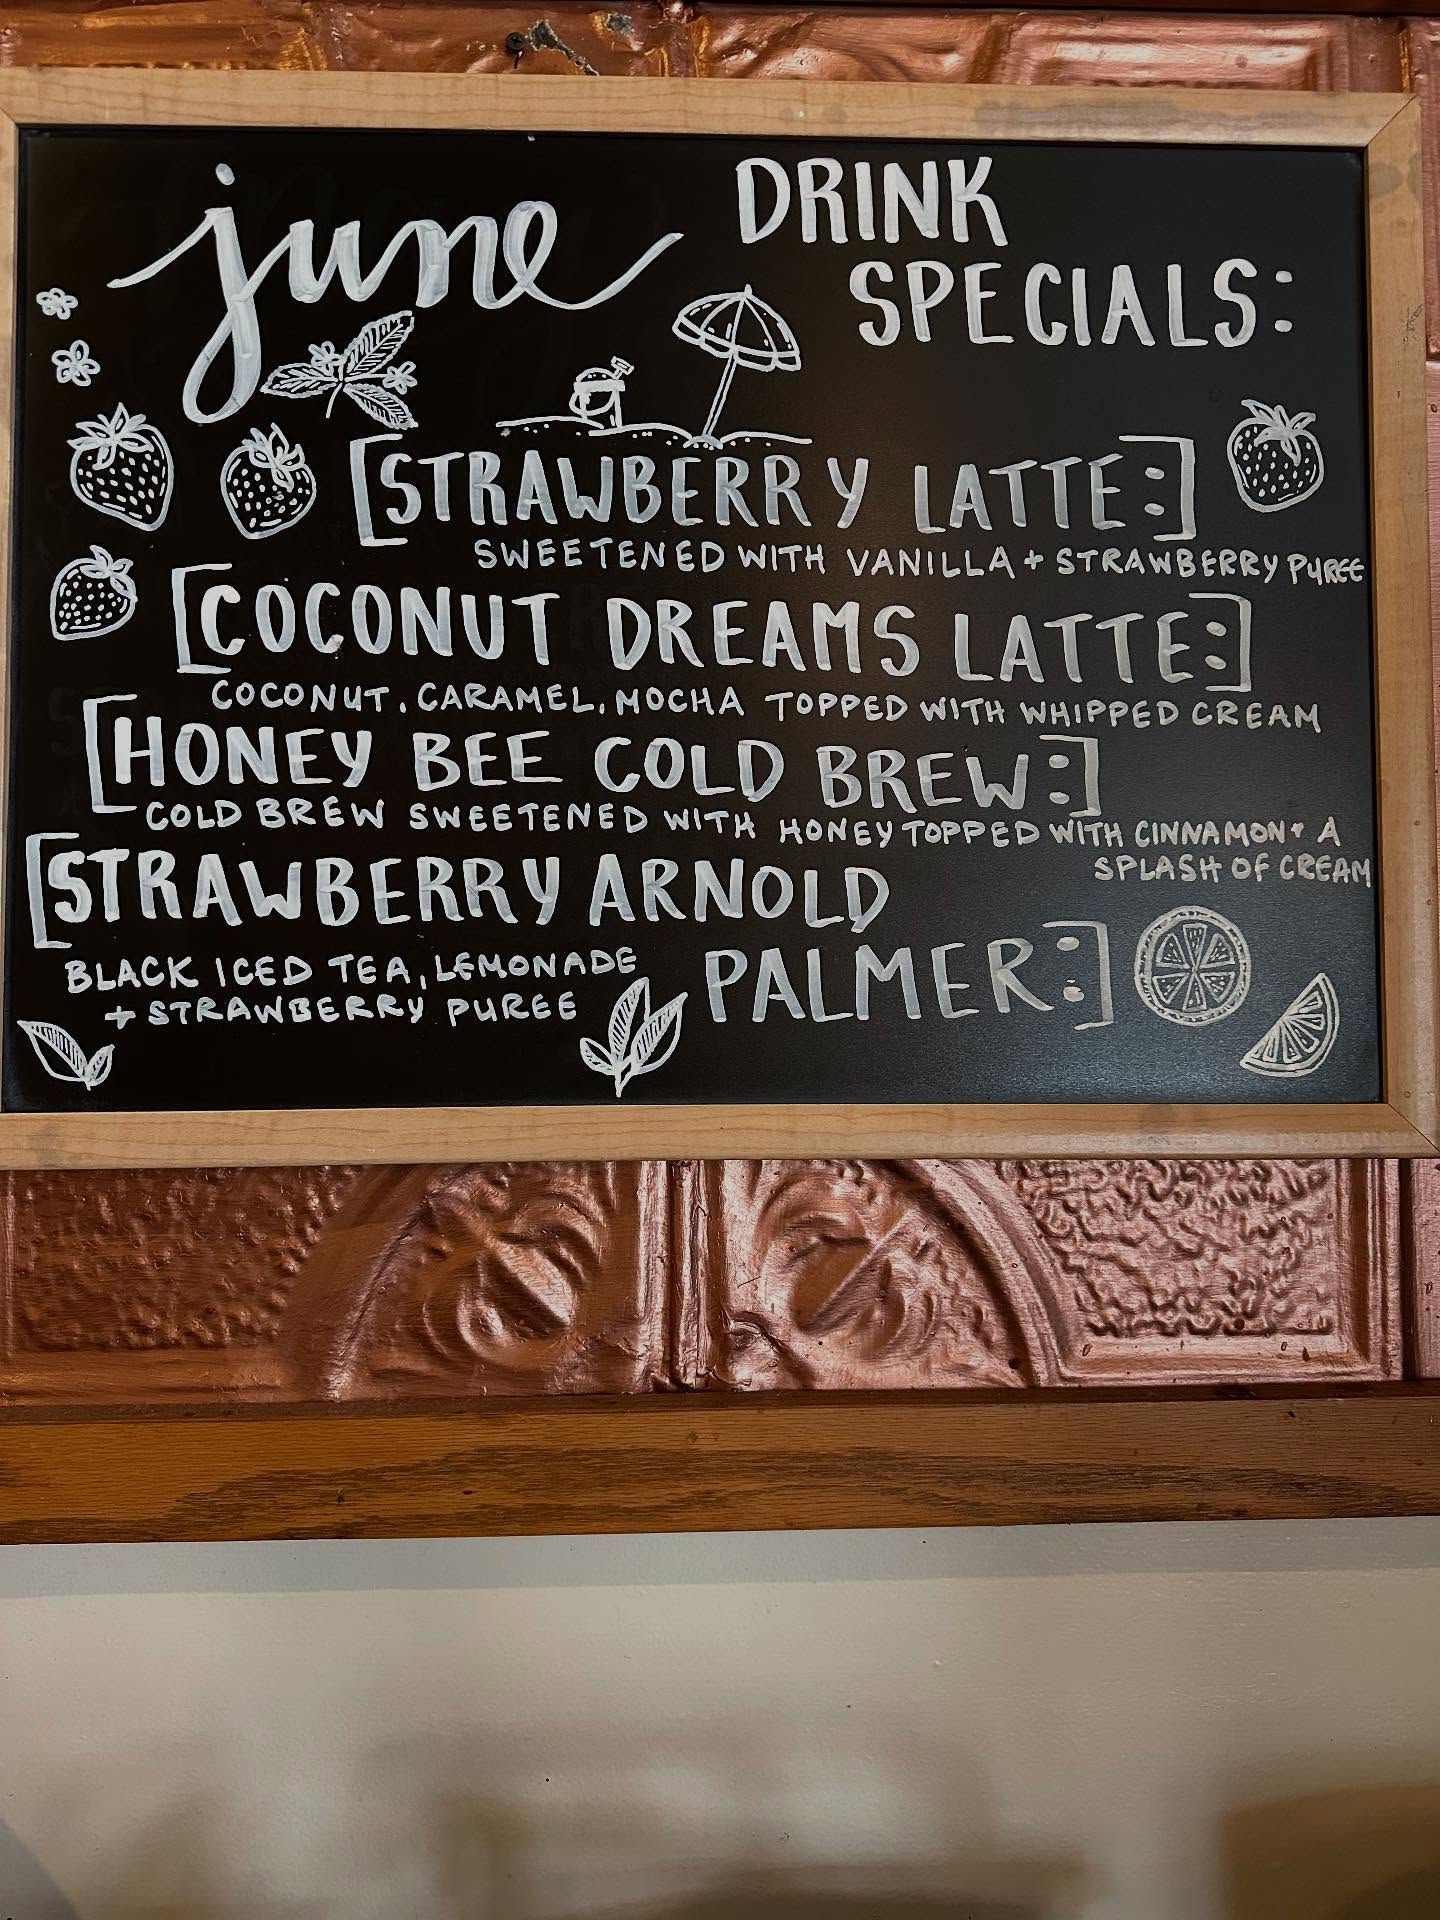 june DRINK
SPECIALS:
[STRAWBERRY LATTE:]
SWEETENED WITH VANILLA + STRAWBERRY PUREE
[COCONUT DREAMS LATTE:]
COCONUT, CARAMEL, MOCHA TOPPED WITH WHIPPED CREAM
[HONEY BEE COLD BREW:]
COLD BREW SWEETENED WITH HONEY TOPPED WITH CINNAMON + A
SPLASH OF CREAM
[STRAWBERRY ARNOLD
PALMER:]
BLACK ICED TEA, LEMONADE
+ STRAWBERRY PUREE